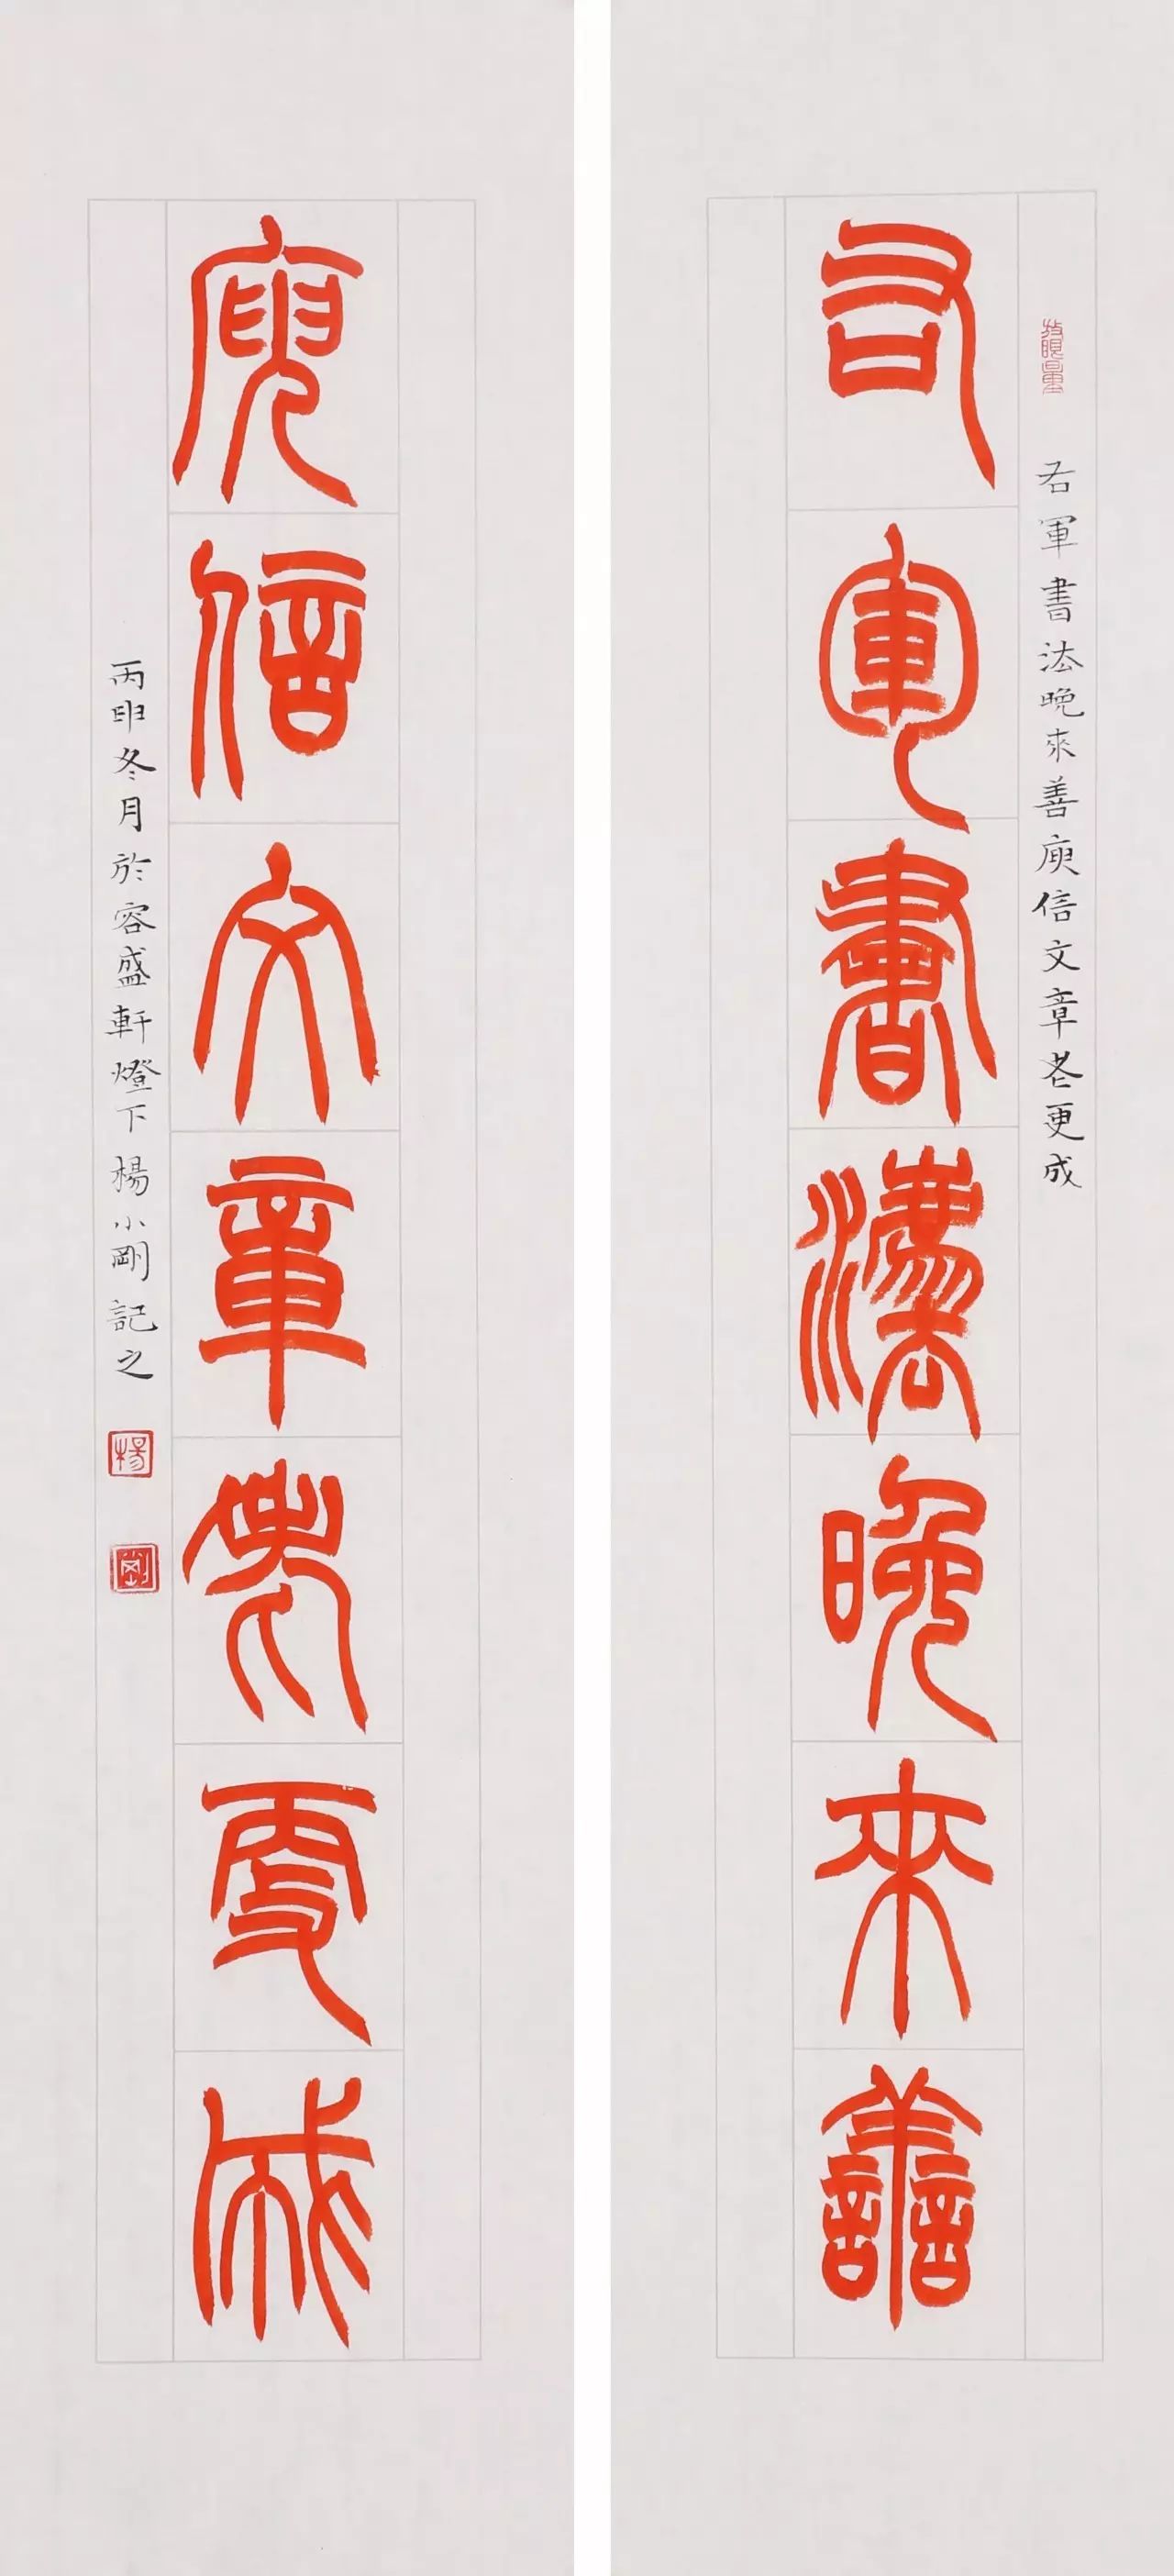 右軍書法晚來善
右軍書法晚來善庾信文章老更成
庾信文章老更成
丙申冬月於容盛軒燈下楊小剛記之
楊
剛